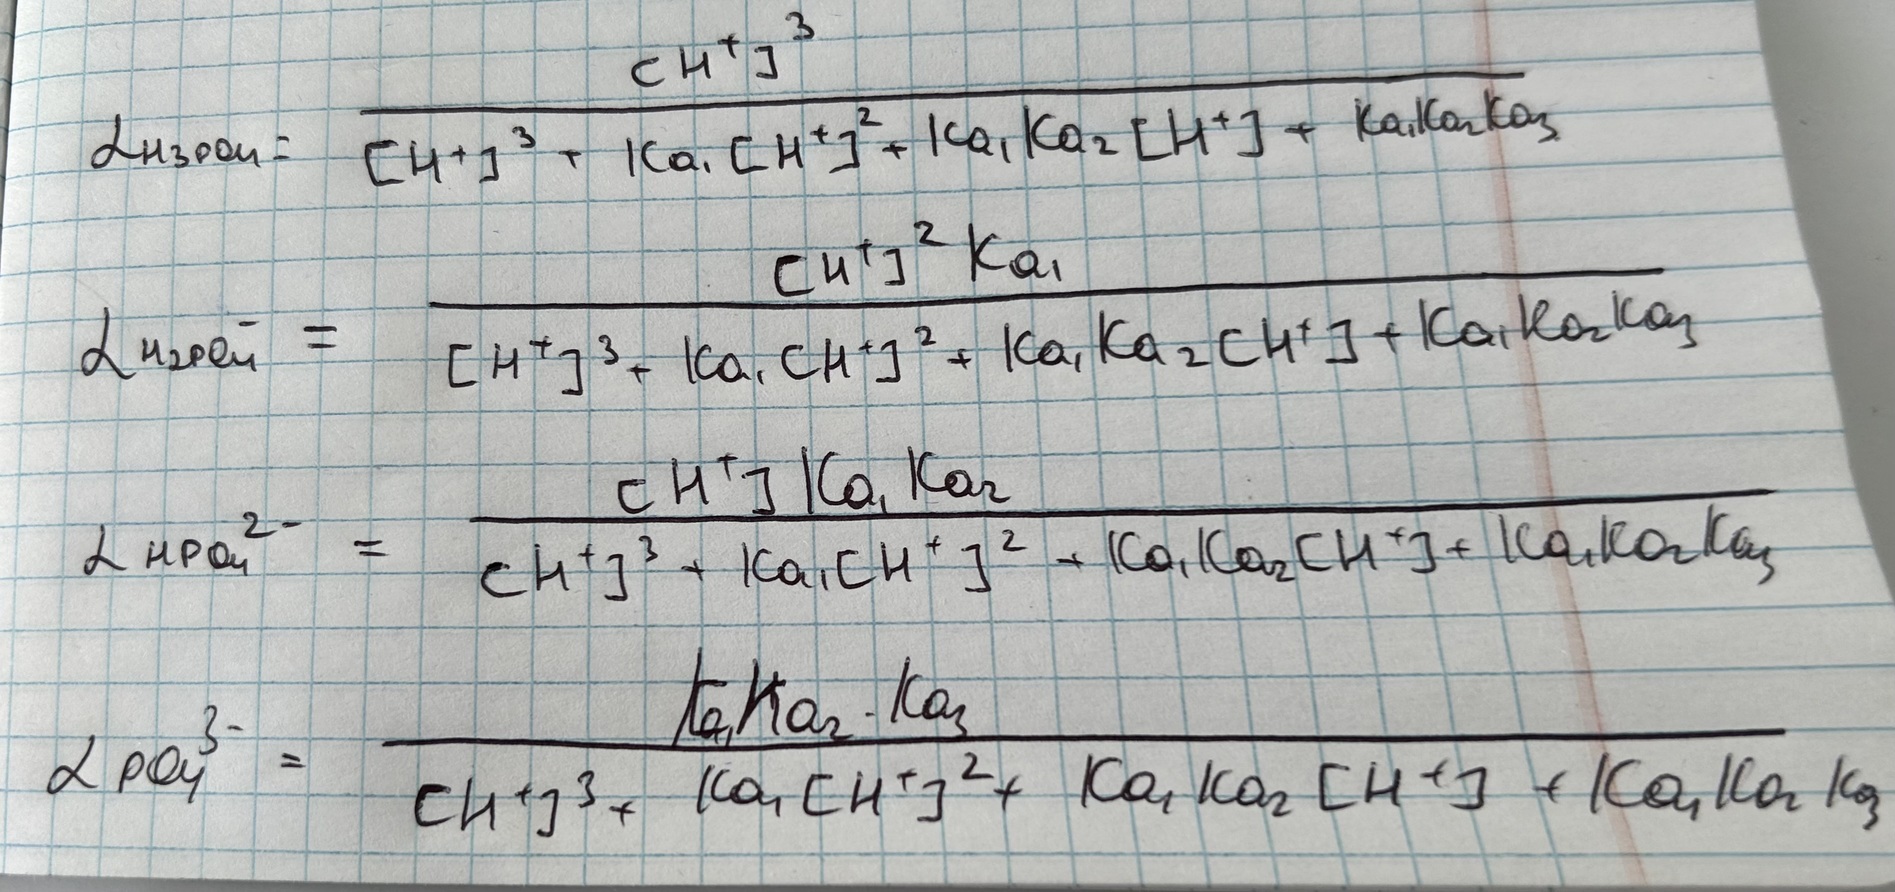 αH₃PO₄ = [H⁺]³ / [H⁺]³ + Ka₁[H⁺]² + Ka₁Ka₂[H⁺] + Ka₁Ka₂Ka₃
αH₂PO₄⁻ = [H⁺]²Ka₁ / [H⁺]³ + Ka₁[H⁺]² + Ka₁Ka₂[H⁺] + Ka₁Ka₂Ka₃
αHPO₄²⁻ = [H⁺]Ka₁Ka₂ / [H⁺]³ + Ka₁[H⁺]² + Ka₁Ka₂[H⁺] + Ka₁Ka₂Ka₃
αPO₄³⁻ = Ka₁Ka₂·Ka₃ / [H⁺]³ + Ka₁[H⁺]² + Ka₁Ka₂[H⁺] + Ka₁Ka₂Ka₃